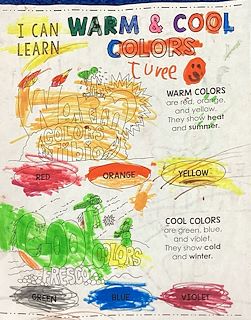 I CAN
LEARN
WARM & COOL
COLORS
WARM COLORS
are red, orange,
and yellow.
They show heat
and summer.
Warm
colors
RED
ORANGE
YELLOW
COOL COLORS
are green, blue,
and violet.
They show cold
and winter.
Cool
COLORS
FRESCO
GREEN
BLUE
VIOLET